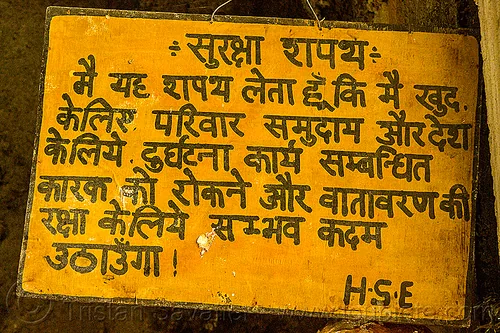 ÷ सुरक्षा शपथ ÷
मै यह शपथ लेता हूँ कि मै खुद,
केलिए परिवार समुदाय और देश
केलिये, दुर्घटना कार्य सम्बन्धित
कारक को रोकने और वातावरण की
रक्षा केलिये सम्भव कदम
उठाउँगा !
H.S.E